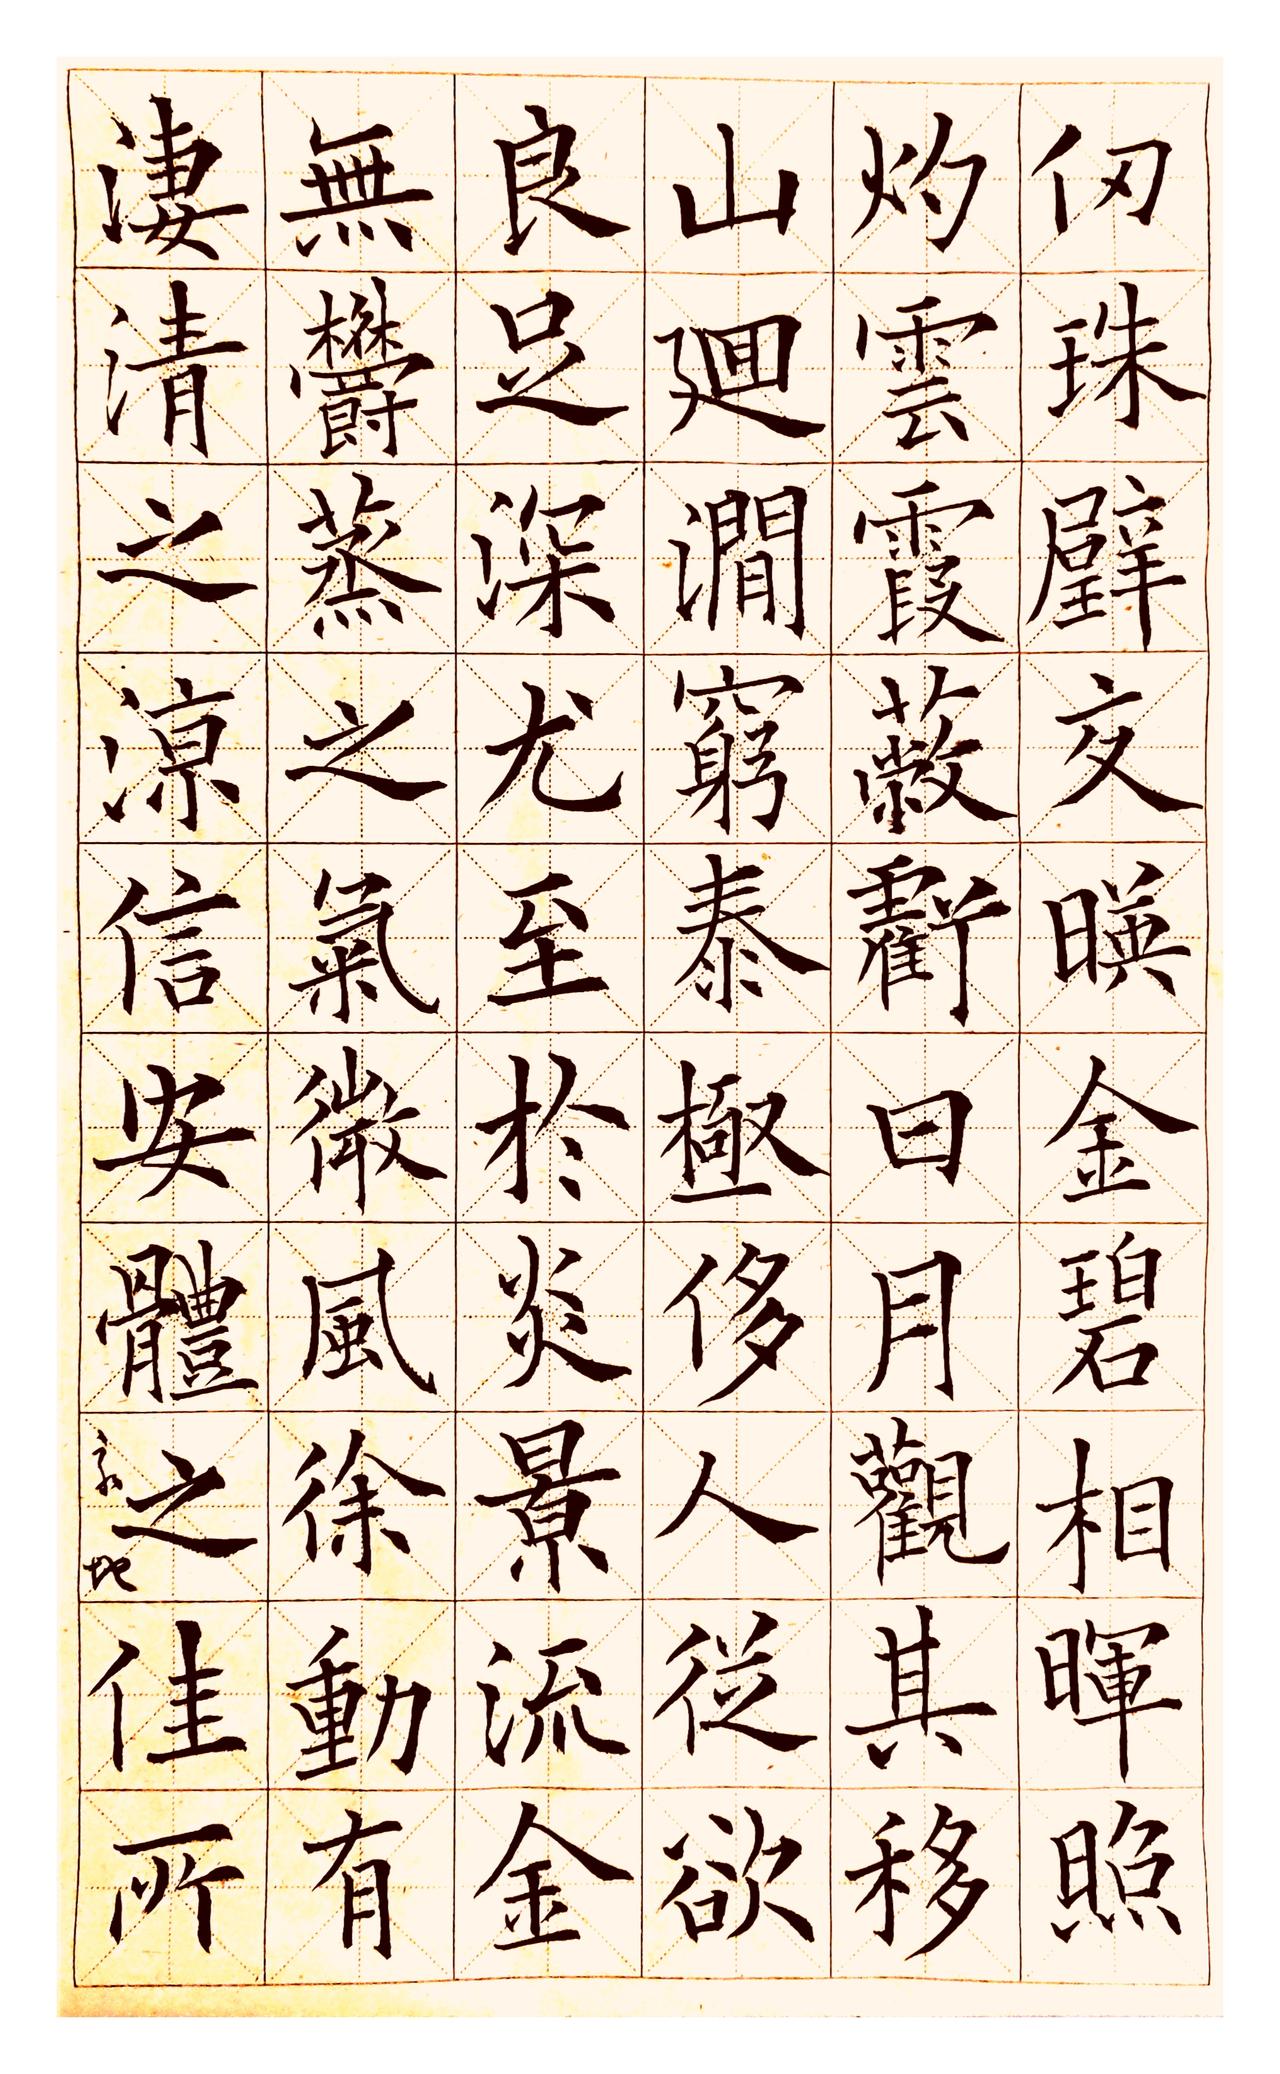 仞珠壁交暎金碧相暉照
灼雲霞蔽虧日月觀其移
山廻澗窮泰極侈人從欲
良足深尤至於炎景流金
無欝蒸之氣微風徐動有
淒清之涼信安體之佳所